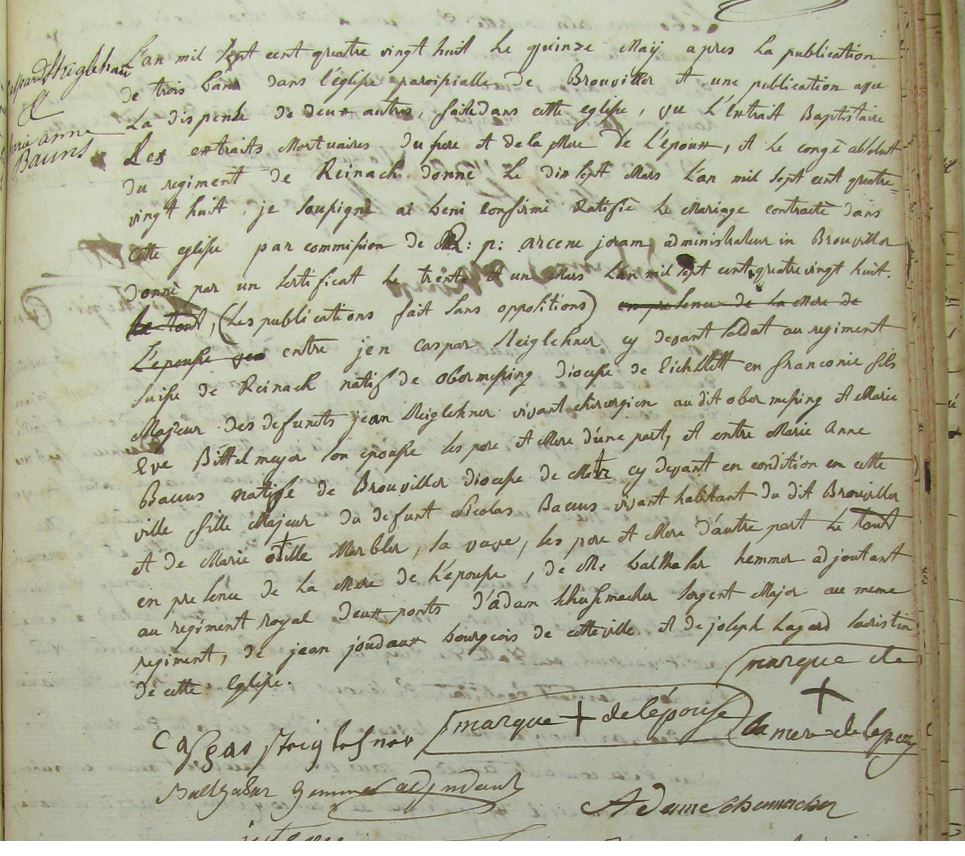 Caspard Steiglehner
&
Marie anne
Bauns
L'an mil sept cent quatre vingt huit le quinze Maÿ apres la publication
de trois bans dans l'eglise paroissialle de Brouviller et une publication vu
La dispense de deux autres, faite dans cette eglise, vu L'extrait Baptistaire
Les extraits Mortuaires du pere et de la Mere de L'epoux, et le congé absolut
du regiment de Reinach donné Le dix sept Mars L'an mil sept cent quatre
vingt huit, je soussigné ai beni confirmé Ratifié Le Mariage contracté dans
cette eglise par commission de R: p: arcene joram administrateur in Brouviller
donné par un Certificat Le trente et un Mars L'an mil sept cent quatre vingt huit.
Le tout, (Les publications fait sans oppositions) en presence de la Mere de
L'epouse entre jen caspar Steiglehner cy devant soldat au regiment
suisse de Reinach natif de obermessing diocese de Eichstett en franconie fils
Majeur des defunts jean Steiglehner vivant chirurgien audit obermessing et Marie
Eve Bittelmeyer son epouse ses pere et Mere d'une part, et entre Marie Anne
Bauns natife de Brouviller diocese de Metz cy devant en condition en cette
ville fille Majeur du defunt Nicolas Bauns vivant habitant du dit Brouviller
et de Marie otille Merbler, sa vave, ses pere et Mere d'autre part Le tout
en presence de la Mere de L'epouse, de Mr balthasar hemmer adjoutant
au regiment royal deux ponts d'adam schuhmacher sergent Major au meme
regiment, de jean joudaux bourgeois de cette ville et de joseph Lagard sacristin
de cette Eglise.
marque de
Caspar Steiglehner marque + de lépouse
la mere de lepouse
Balthasar Hemmer adjudant
Adam Schumacher